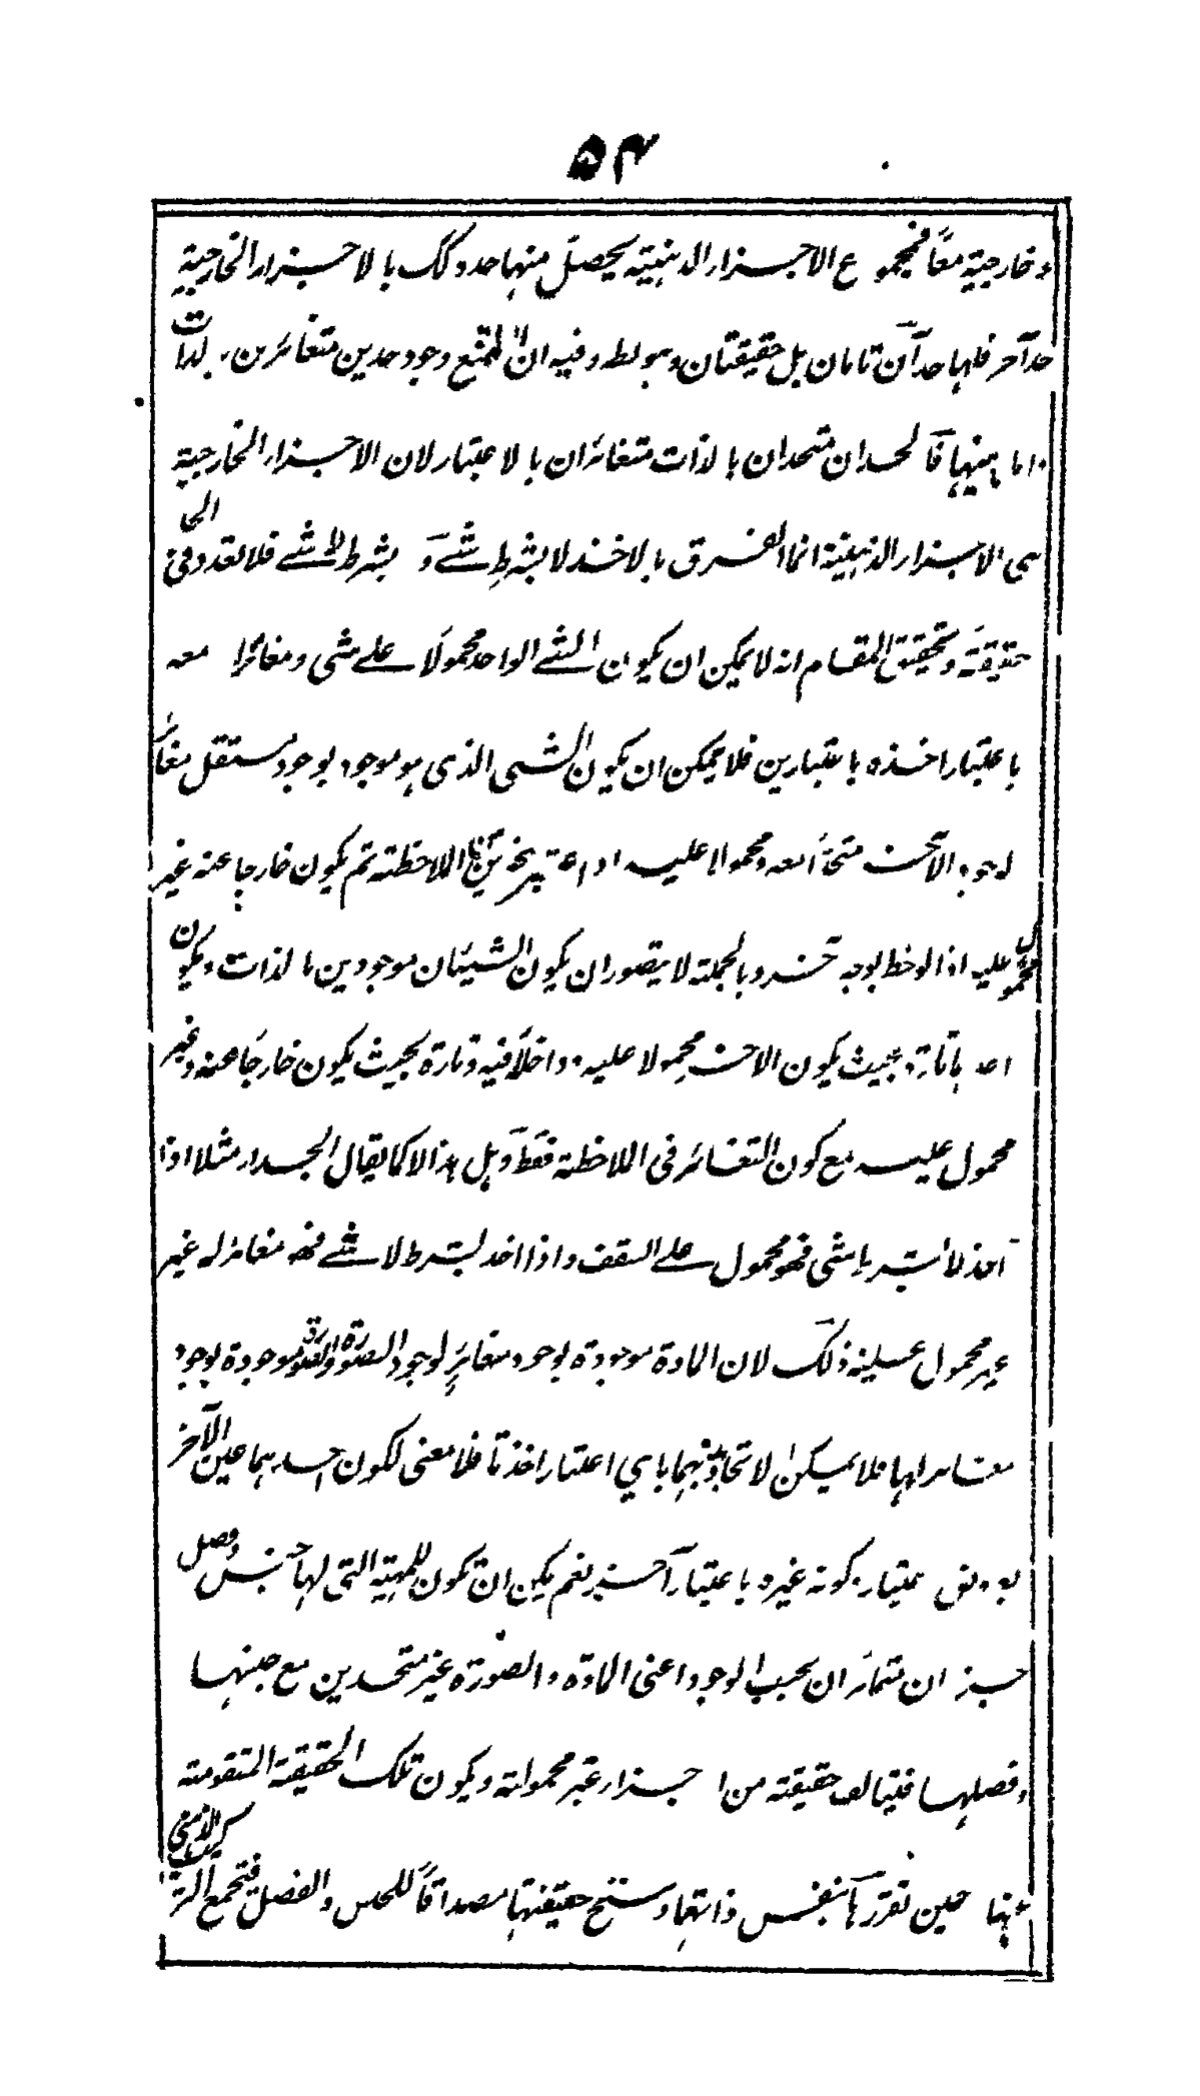 ٥٤
و خارجية معاً فمجموع الاجزاء الذهنية يحصل منها حد وكك بالاجزاء الخارجية
حد آخر فلها حدآن تامان بل حقيقتان وهو بط وفيه ان الممتنع وجود حدين متغائرين بالذات
واما بينها فالحدان متحدان بالذات متغائران بالاعتبار لان الاجزاء الخارجية
هى الاجزاء الذهنية انما الفرق بالاخذ لا بشرط شئے و بشرط لا شئے فلا تعدد فى الى
حقيقة وتحقيق المقام انه لا يمكن ان يكون الشئے الواحد محمولا علے شى ومغائرا معه
باعتبار اخذه باعتبارين فلا يمكن ان يكون الشى الذى هو موجود بوجود مستقل مغائر
لوجود الآخر متحدا معه ومحمولا عليه اذا اعتبر بنحو من الملاحظة ثم يكون خارجا عنه غير
محمول عليه اذا لوحظ بوجه آخر وبالجملة لا يتصور ان يكون الشيئان موجودين بالذات ويكون
احدها تارة بحيث يكون الاخر محمولا عليه وداخلا فيه وتارة بحيث يكون خارجا عنه وغير
محمول عليه مع كون التغائر فى الملاحظة فقط وهل هذا الا كما يقال الجدار مثلا اذا
اخذ لا بشرط شى فهو محمول علے السقف واذا اخذ بشرط لا شئے فهو مغائر له غير
غير محمول عليه وذلك لان المادة موجودة بوجود مغائر لوجود الصورة والصورة موجودة بوجود
مغائر لها فلا يمكن الاتحاد بينهما باي اعتبار اخذتا فلا معنى لكون احدهما عين الآخر
باعتبار كونه غيره باعتبار آخر نعم يمكن ان تكون للمهية التى لها جنس وفصل
جزءان متمائزان بحسب الوجود اعنى المادة والصورة غير متحدين مع جنسها
وفصلها فيتالف حقيقته من اجزاء غير محمولة ويكون تلك الحقيقة المتقومة
منها حين تقررها بنفس ذاتها وسنخ حقيقتها مصداقاً للجنس والفصل فتجمع التركيب الذهنى